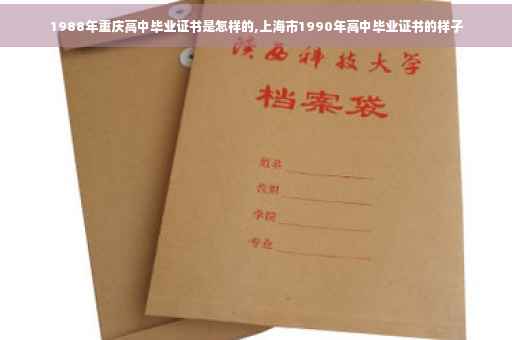 1988年重庆高中毕业证书是怎样的,上海市1990年高中毕业证书的样子
陕西科技大学
档案袋
姓名
性别
学院
专业